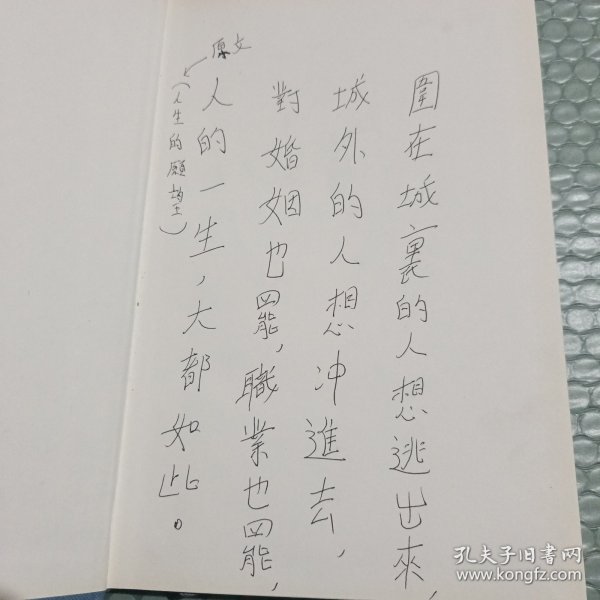 圍在城裏的人想逃出來，
城外的人想冲進去，
對婚姻也罷，職業也罷，
人的一生，大都如此。
原文
（人生的願望）
孔夫子旧书网
www.kongfz.com